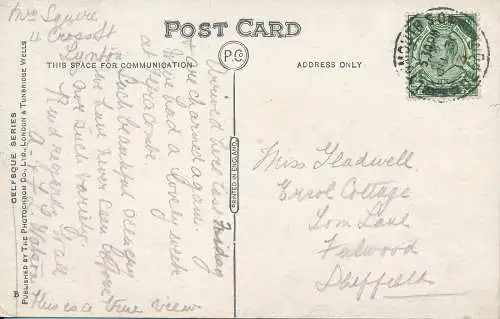 Mrs Squire
11 Cross St
Lynton
POST CARD
THIS SPACE FOR COMMUNICATION
P.Co
ADDRESS ONLY
Arrived here last Friday
& are charmed again.
We had a lovely week
at Ilfracombe.
Such beautiful scenery
we have never seen before
& such variety.
Kind regards to all
A. & J. Waters
This is a true view
Miss Gladwell
Errol Cottage
Tom Lane
Fulwood
Sheffield
CELESQUE SERIES
PUBLISHED BY THE PHOTOCHROM CO., LTD., LONDON & TUNBRIDGE WELLS
B
PRINTED IN ENGLAND